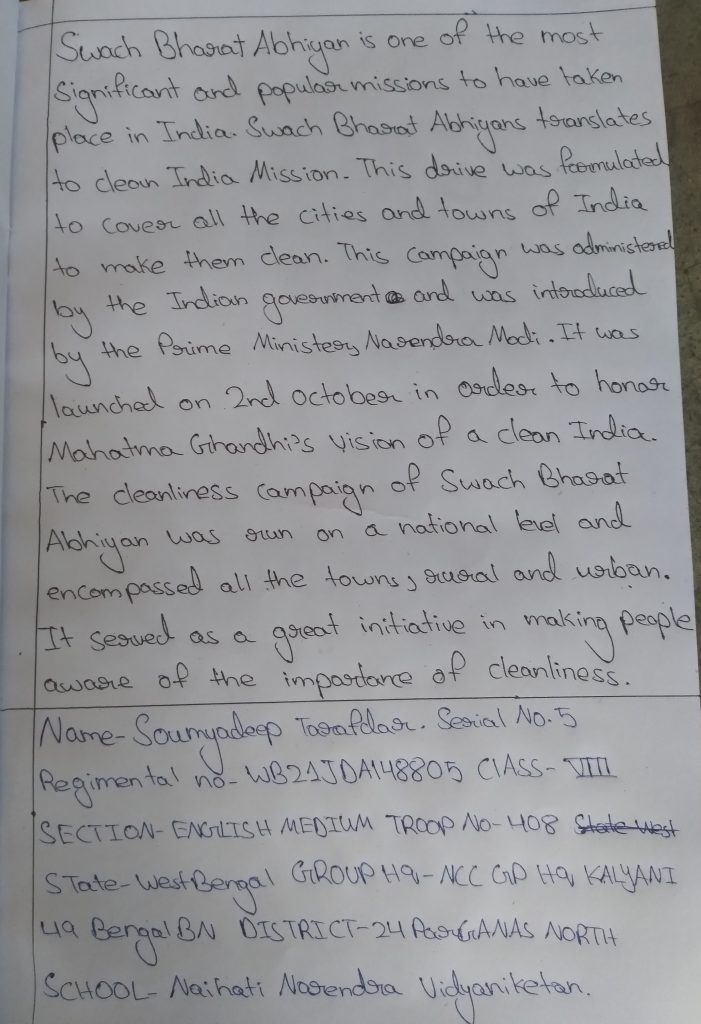 Swach Bharat Abhiyan is one of the most
significant and popular missions to have taken
place in India. Swach Bharat Abhiyans translates
to clean India Mission. This drive was formulated
to cover all the cities and towns of India
to make them clean. This campaign was administered
by the Indian government and was introduced
by the Prime Minister, Narendra Modi. It was
launched on 2nd October in order to honar
Mahatma Ghandhi's vision of a clean India.
The cleanliness campaign of Swach Bharat
Abhiyan was run on a national level and
encompassed all the towns, rural and urban.
It served as a great initiative in making people
aware of the importance of cleanliness.
Name- Soumyadeep Tarafdar. Serial No. 5
Regimental no- WB21JDA148805 ClASS- VIII
SECTION- ENGLISH MEDIUM TROOP No-408 State West
STate- West Bengal GROUP HQ- NCC GP HQ KALYANI
49 Bengal BN DISTRICT-24 ParGANAS NORTH
SCHOOL- Naihati Narendra Vidyaniketan.